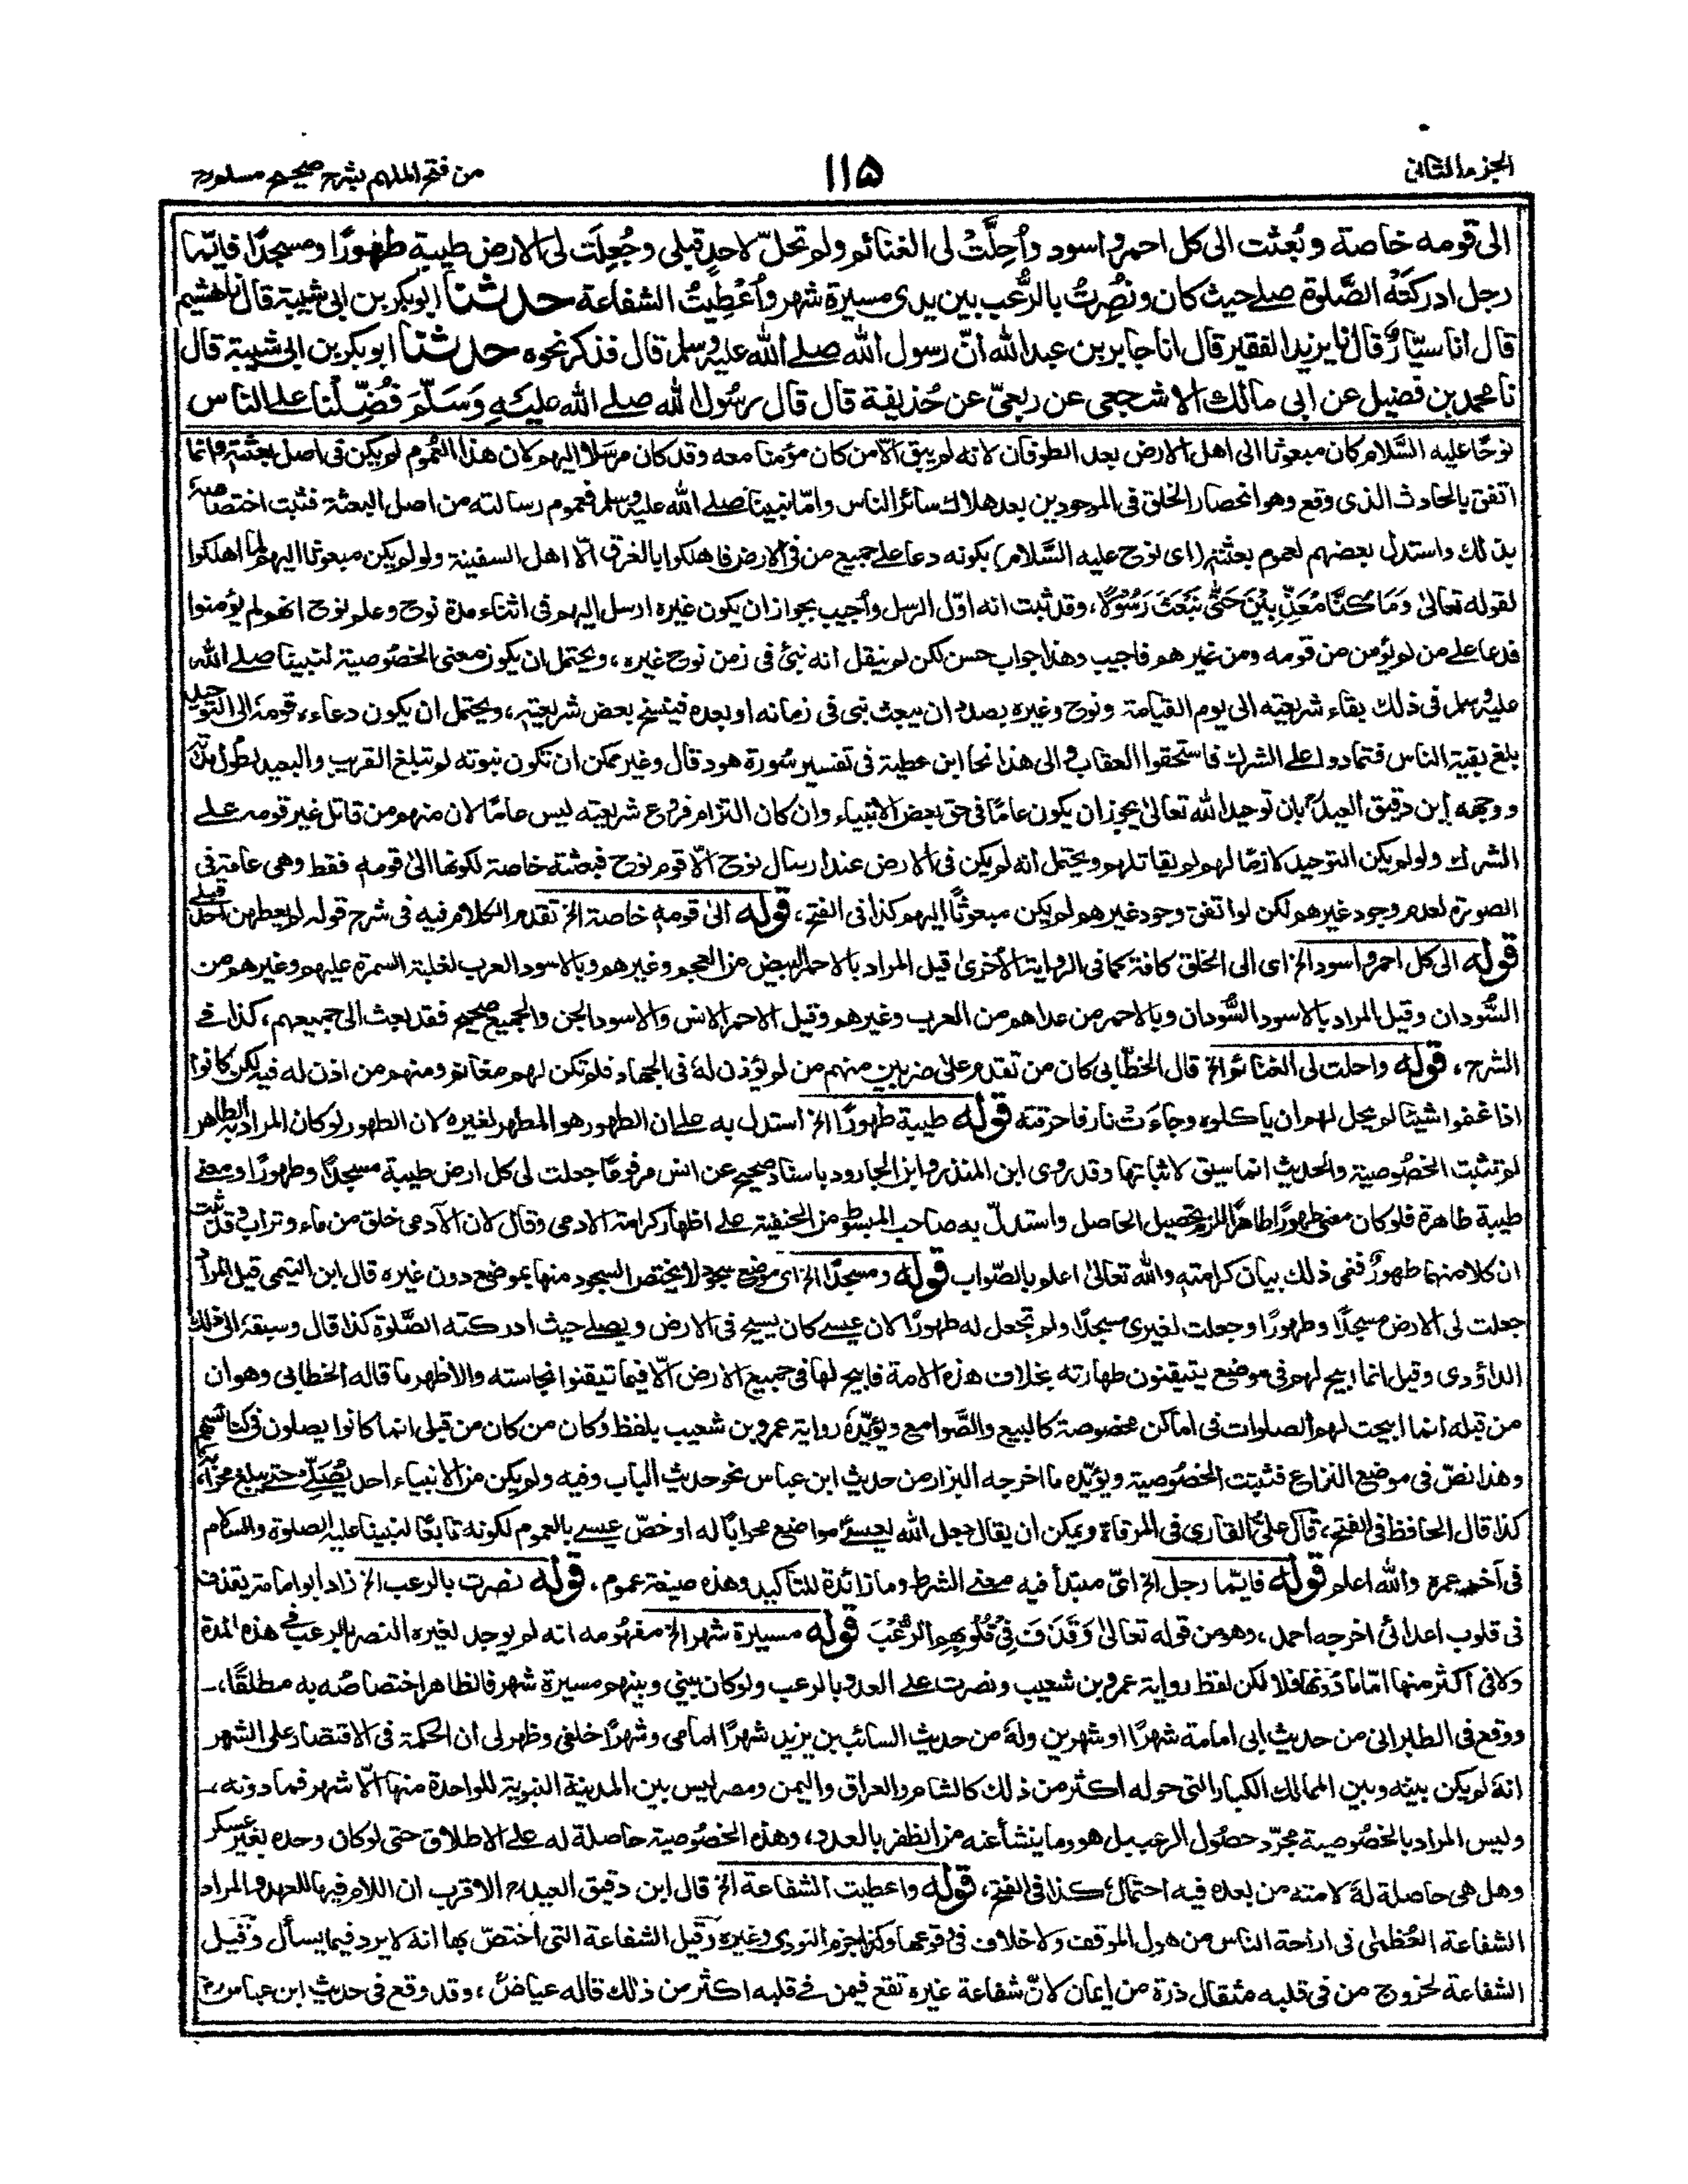 الجزء الثانى
۱۱۵
من فتح الملهم بشرح صحيح مسلم
الى قومه خاصة وبُعثت الى كل احمر و اسود وأُحِلَّتْ لى الغنائم ولم تحلّ لاحدٍ قبلى وجُعِلَت لى الارض طيبة طهورًا ومسجدًا فايّما
رجل ادركَتْهُ الصَّلوة صلے حيث كان ونُصِرتُ بالرُّعب بين يدى مسيرة شهر وأُعْطِيتُ الشفاعة حدثنا ابوبكر بن ابى شيبة قال نا هشيم
قال انا سيّارٌ قال نا يزيد الفقير قال انا جابر بن عبد الله انّ رسول الله صلے الله عليه وسلم قال فذكر نحوه حدثنا ابو بكر بن ابى شيبة قال
نا محمد بن فضيل عن ابى مالك الاشجعى عن ربعىّ عن حُذيفة قال قال رسُول الله صلے الله عليہِ وَسَلَّمَ فُضِّلْنا علے الناس
نوحًا عليه السَّلام كان مبعوثا الى اهل الارض بعد الطوفان لانه لم يبق الّا من كان مؤمنا معه وقد كان مرسلا اليهم لان هذا العُموم لم يكن فى اصل بعثته وانما
اتفق بالحادث الذى وقع وهو انحصار الخلق فى الموجودين بعد هلاك سائر الناس وامّا نبينا صلے الله عليه وسلم فعموم رسالته من اصل البعثة فثبت اختصاصهٗ
بذلك واستدل بعضهم لعموم بعثته (اى نوح عليه السَّلام) بكونه دعا علے جميع من فى الارض فاهلكوا بالغرق الّا اهل السفينة ولو لم يكن مبعوثا اليهم لما اهلكوا
لقوله تعالىٰ وَمَا كُنَّا مُعَذِّبِيْنَ حَتّٰى نَبْعَثَ رَسُوْلًا، وقد ثبت انه اوّل الرسل وأجيب بجواز ان يكون غيره ارسل اليهم فى اثناء مدة نوح وعلم نوح انهم لم يؤمنوا
فدعا علے من لم يؤمن من قومه ومن غيرهم فاجيب وهذا جواب حسن لكن لم ينقل انه نبئ فى زمن نوح غيره، ويحتمل ان يكون معنى الخصُوصية لنبينا صلے الله
عليه وسلم فى ذلك بقاء شريعته الى يوم القيامة ونوح وغيره بصدد ان يبعث نبى فى زمانه او بعده فينسخ بعض شريعته، ويحتمل ان يكون دعاءه قومهٗ الى التوحيد
بلغ بقية الناس فتمادوا على الشرك فاستحقوا العقاب والى هذا نحا ابن عطية فى تفسير سُورة هود قال وغير ممكن ان تكون نبوته لم تبلغ القريب والبعيد لطول مدته
ووجهه ابن دقيق العيد بان توحيد الله تعالىٰ يجوز ان يكون عامًا فى حق بعض الانبياء وان كان التزام فروع شريعته ليس عامًا لان منهم من قاتل غير قومه علے
الشرك ولو لم يكن التوحيد لازمًا لهم لم يقاتلهم ويحتمل انه لم يكن فى الارض عند ارسال نوح الّا قوم نوح فبعثته خاصة لكونها الىٰ قومه فقط وهى عامة فى
الصورة لعدم وجود غيرهم لكن لو اتفق وجود غيرهم لم يكن مبعوثًا اليهم كذا فى الفتح، قوله الىٰ قومه خاصة الخ تقدم الكلام فيه فى شرح قوله لم يعطهن احد قبلے
قوله الى كل احمر و اسود الخ اى الى الخلق كافة كما فى الرواية الأخرىٰ قيل المراد بالاحمر البيض من العجم وغيرهم وبالاسود العرب لغلبة السمرة عليهم وغيرهم من
السُّودان وقيل المراد بالاسود السُّودان وبالاحمر من عداهم من العرب وغيرهم وقيل الاحمر الانس والاسود الجن والجميع صحيح فقد بعث الى جميعهم، كذا فے
الشرح، قوله واحلت لى الغنائم الخ قال الخطّابى كان من تقدم علىٰ ضربين منهم من لم يؤذن لهٗ فى الجهاد فلم تكن لهم مغانم ومنهم من اذن له فيه لكن كانوا
اذا غنموا شيئا لم يحل لهم ان ياكلوه وجاءَت نار فاحرقته قوله طيبة طهورًا الخ استدل به علے ان الطهور هو المطهر لغيره لان الطهور لو كان المراد به الطاهر
لم تثبت الخصُوصية والحديث انما سيق لاثباتها وقد روى ابن المنذر وابن الجارود باسناد صحيح عن انس مرفوعًا جعلت لى كل ارض طيبة مسجدًا وطهورًا ومعنے
طيبة طاهرة فلو كان معنى طهورًا طاهرًا للزم تحصيل الحاصل واستدلّ به صاحب المبسوط من الحنفية علے اظهار كرامة الادمى وقال لان الآدمى خلق من ماء وتراب وقد ثبت
ان كلا منهما طهورٌ ففى ذلك بيان كرامته والله تعالىٰ اعلم بالصّواب قوله ومسجدًا الخ اى موضع سجود لا يختص السجود منها بموضع دون غيره قال ابن التيمى قيل المراد
جعلت لى الارض مسجدًا وطهورًا وجعلت لغيرى مسجدًا ولم تجعل له طهورًا لان عيسے كان يسيح فى الارض ويصلے حيث ادركته الصَّلوة كذا قال وسبقهٗ الى ذلك
الداؤدى وقيل انما ابيح لهم فى موضع يتيقنون طهارته بخلاف هذه الامة فابيح لها فى جميع الارض الّا فيما تيقنوا نجاسته والاظهر ما قاله الخطابى وهو ان
من قبله انما ابيحت لهم الصلوات فى اماكن مخصوصة كالبيع والصَّوامع ويؤيّدهٗ رواية عمرو بن شعيب بلفظ وكان من كان من قبلى انما كانوا يصلون فى كنائسهم
وهذا نصّ فى موضع النزاع فثبتت الخصُوصية ويؤيّده ما اخرجه البزار من حديث ابن عباس نحو حديث الباب وفيه ولم يكن من الانبياء احد يُصَلّے حتے يبلغ محرابه
كذا قال الحافظ فى الفتح، قال علىّ القارى فى المرقاة ويمكن ان يقال جعل الله لعيسےٰ مواضع محرابًا له او خصّ عيسے بالعموم لكونه تابعًا لنبينا عليه الصلوة والسلام
فى آخر عمره والله اعلم قوله فايّما رجل الخ اىّ مبتدأ فيه معنے الشرط وما زائدة للتاكيد وهذه صيغة عموم، قوله نصرت بالرعب الخ زاد ابو امامة يقذف
فى قلوب اعدائى اخرجه احمد، وهو من قوله تعالىٰ وَقَذَفَ فِىْ قُلُوْبِهِمُ الرُّعْبَ قوله مسيرة شهر الخ مفهُومه انه لم يوجد لغيره النصر بالرعب فى هذه المدة
ولا فى اكثر منها امّا ما دُونها فلا لكن لفظ رواية عمرو بن شعيب ونصرت علے العدو بالرعب ولو كان بينى وبينهم مسيرة شهر فالظاهر اختصاصُه به مطلقًا،
ووقع فى الطبرانى من حديث ابى امامة شهرًا او شهرين ولهٗ من حديث السائب بن يزيد شهرًا امامى وشهرًا خلفى وظهر لى ان الحكمة فى الاقتصار على الشهر
انهٗ لم يكن بينه وبين الممالك الكبار التى حوله اكثر من ذلك كالشام والعراق واليمن ومصر ليس بين المدينة النبوية للواحدة منها الّا شهر فما دونه،
وليس المراد بالخصُوصية مجرّد حصُول الرعب بل هو وما ينشأ عنه من الظفر بالعدو، وهذه الخصُوصية حاصلة له علے الاطلاق حتى لو كان وحده بغير عسكر
وهل هى حاصلة لهٗ لامته من بعده فيه احتمال كذا فى الفتح، قوله واعطيت الشفاعة الخ قال ابن دقيق العيد الاقرب ان اللام فيها للعهد والمراد
الشفاعة العُظمٰى فى اراحة الناس من هول الموقف ولا خلاف فى وقوعها وكذا جزم النووى وغيره وقيل الشفاعة التى اختصّ بها انه لا يرد فيما يسأل وقيل
الشفاعة لخروج من فى قلبه مثقال ذرة من ايمان لانّ شفاعة غيره تقع فيمن فے قلبه اكثر من ذلك قاله عياض، وقد وقع فى حديث ابن عباس